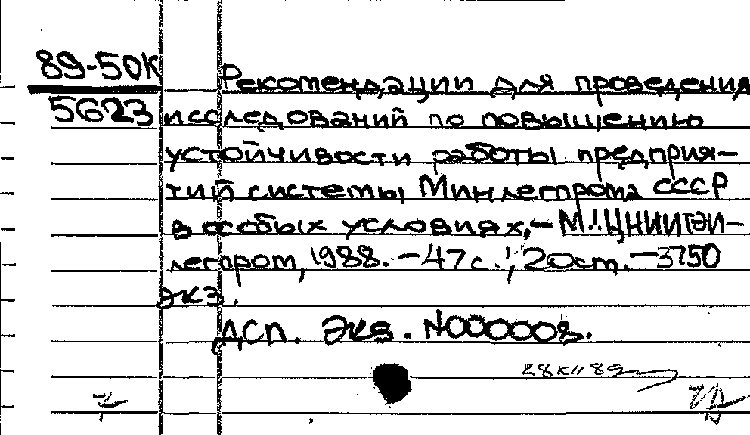 89-50К
5623
Рекомендации для проведения
исследований по повышению
устойчивости работы предприя-
тий системы Минлегпрома СССР
в особых условиях,- М.:ЦНИИТЭИ-
легпром, 1988. - 47 с.; 20 см. - 3750
экз.
ДСП. Экз. N000008.